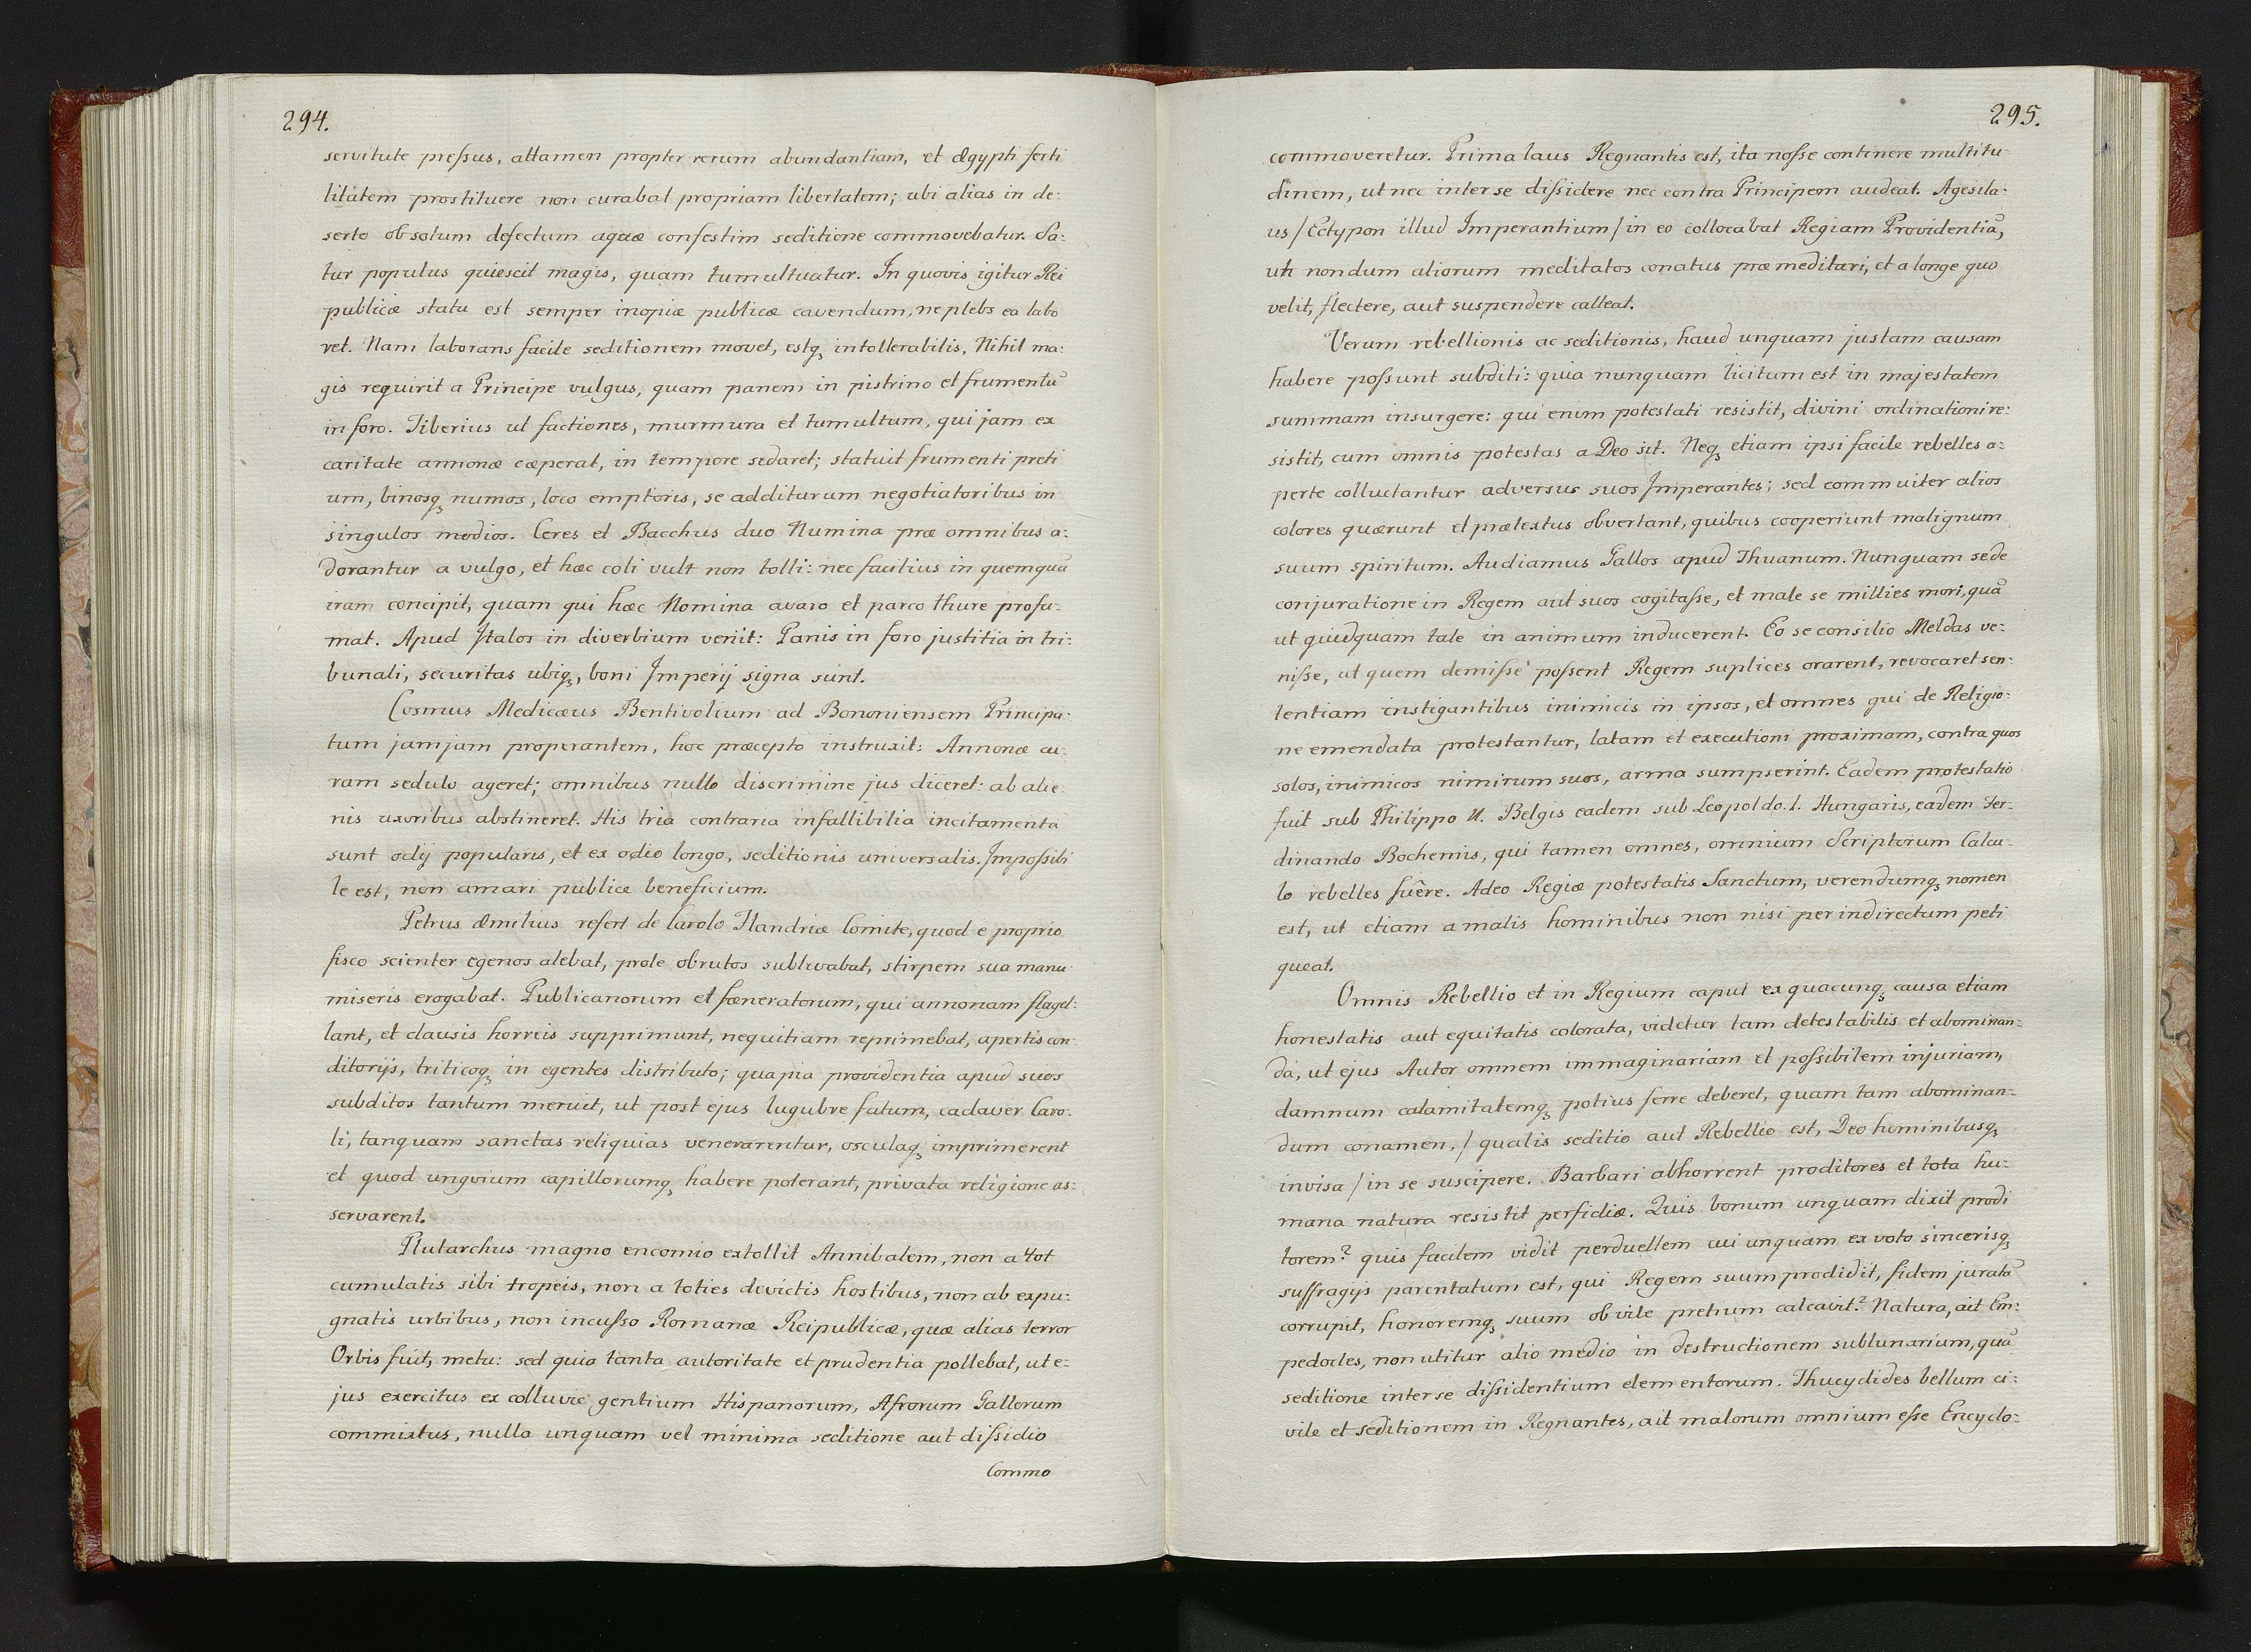 294.
servitute pressus, attamen propter rerum abundantiam, et Ægypti ferti
litatem prostituere non curabat propriam libertatem; ubi alias in de:
serto ob solum defectum aquæ confestim seditione commovebatur. Sa:
tur populus quiescit magis, quam tumultuatur. In quovis igitur Rei
publicæ statu est semper inopiæ publicæ cavendum, ne plebs ea labo
ret. Nam laborans facile seditionem movet, estqȝ intollerabilis, Nihil ma:
gis requirit a Principe vulgus, quam panem in pistrino et frumentū
in foro. Tiberius ut factiones, murmura et tumultum, qui jam ex
caritate annonæ cæperat, in tempore sedaret; statuit frumenti preti
um, binosqȝ numos, loco emptoris, se additurum negotiatoribus in
singulos modios. Ceres et Bacchus duo Numina præ omnibus a:
dorantur a vulgo, et hæc coli vult non tolli: nec facilius in quemquā
iram concipit, quam qui hæc Nomina avaro et parco thure profu:
mat. Apud Italos in diverbium venit: Panis in foro justitia in tri:
bunali, securitas ubiqȝ, boni Imperij signa sunt.
Cosmus Medicæus Bentivolium ad Bononiensem Principa:
tum jamjam properantem, hoc præcepto instruxit: Annonæ cu:
ram sedulo ageret; omnibus nullo discrimine jus diceret: ab alie:
nis uxoribus abstineret. His tria contraria infallibilia incitamenta
sunt odij popularis, et ex odio longo, seditionis universalis. Impossibi
le est, non amari publice beneficium.
Petrus Æmilius refert de Carolo Flandriæ Comite, quod e proprio
fisco scienter egenos alebat, prole obrutos sublevabat, stirpem sua manu
miseris erogabat. Publicanorum et fœneratorum, qui annonam flagel:
lant, et clausis horreis supprimunt, nequitiam reprimebat, apertis con:
ditorijs, triticoqȝ in egentes distributo; qua pia providentia apud suos
subditos tantum meruit, ut post ejus lugubre fatum, cadaver Caro:
li, tanquam sanctas reliquias venerarentur, osculaqȝ imprimerent
et quod unguium capillorumqȝ habere poterant, privata religione as:
servarent.
Plutarchus magno encomio extollit Annibalem, non a tot
cumulatis sibi tropeis, non a toties devictis hostibus, non ab expu:
gnatis urbibus, non incusso Romanæ Reipublicæ, quæ alias terror
Orbis fuit, metu: sed quia tanta autoritate et prudentia pollebat, ut e:
jus exercitus ex colluvie gentium Hispanorum, Afrorum Gallorum
commixtus, nulla unquam vel minima seditione aut dissidio
Commo
295.
commoveretur. Prima laus Regnantis est, ita nosse continere multitu:
dinem, ut nec inter se dissidere nec contra Principem audeat. Agesila:
us / Ectypon illud Imperantium / in eo collocabat Regiam Providentiā,
uti nondum aliorum meditatos conatus præmeditari, et a longe quo
velit, flectere, aut suspendere calleat.
Verum rebellionis ac seditionis, haud unquam justam causam
habere possunt subditi: quia nunquam licitum est in majestatem
summam insurgere: qui enim potestati resistit, divini ordinationi re:
sistit, cum omnis potestas a Deo sit. Neqȝ etiam ipsi facile rebelles a:
perte colluctantur adversus suos Imperantes; sed commuiter alios
colores quærunt et prætextus obvertant, quibus cooperiunt malignum
suum spiritum. Audiamus Gallos apud Thuanum. Nunquam se de
conjuratione in Regem aut suos cogitasse, et male se millies mori, quā
ut quidquam tale in animum inducerent. Eo se consilio Meldas ve:
nisse, ut quem demisse possent Regem suplices orarent, revocaret sen:
tentiam instigantibus inimicis in ipsos, et omnes qui de Religio:
ne emendata protestantur, latam et executioni proximam, contra quos
solos, inimicos nimirum suos, arma sumpserint. Eadem protestatio
fuit sub Philippo II. Belgis eadem sub Leopoldo I. Hungaris, eadem Fer:
dinando Bochemis, qui tamen omnes, omnium Scriptorum Calcu:
lo rebelles fuêre. Adeo Regiæ potestatis Sanctum, verendumqȝ nomen
est, ut etiam a malis hominibus non nisi per indirectum peti
queat.
Omnis Rebellio et in Regium caput ex quacunqȝ causa etiam
honestatis aut equitatis colorata, videtur tam detestabilis et abominan:
da, ut ejus Autor omnem immaginariam et possibilem injuriam,
damnum calamitatemqȝ potius ferre deberet, quam tam abominan:
dum conamen, / qualis seditio aut Rebellio est, Deo hominibusqȝ
invisa / in se suscipere. Barbari abhorrent proditores et tota hu:
mana natura resistit perfidiæ. Quis bonum unquam dixit prodi
torem? quis facilem vidit perduellem cui unquam ex voto sincerisqȝ
suffragijs parentatum est, qui Regem suum prodidit, fidem juratā
corrupit, honoremqȝ suum ob vile pretium calcavit? Natura, ait Em:
pedocles, non utitur alio medio in destructionem sublunarium, quā
seditione inter se dissidentium elementorum. Thucydides bellum ci:
vile et seditionem in Regnantes, ait malorum omnium esse Encyclo: